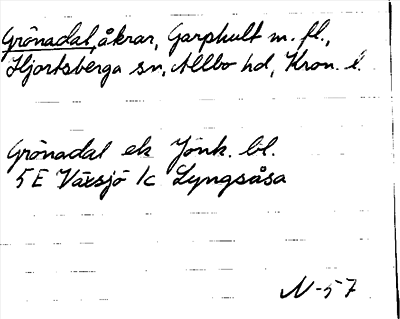 Grönadal, åkrar, Garphult m. fl.,
Hjortsberga sn, Allbo hd, Kron. l.
Grönadal ek Jönk. bl.
5E Växsjö 1c Lyngsåsa
N-57